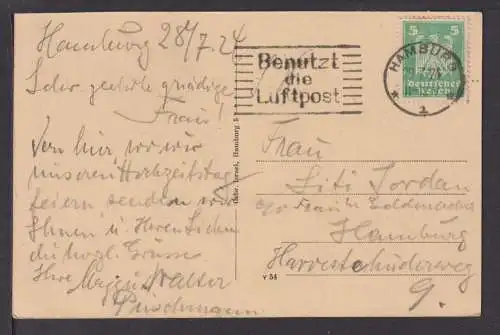 Hamburg 28/7.24
Sehr geehrte gnädige
Frau!
Von hier wo wir
unseren Hochzeitstag
feiern senden wir
Ihnen u Herrn
die herzl. Grüsse
Ihre Walter
Benutzt
die
Luftpost
HAMBURG
1
5 5
Deutsches
Reich
Gebr. Israel, Hamburg 5
V 54
Frau
Liti Jordan
c/o Frau
Hamburg
Harvestehuderweg
9.